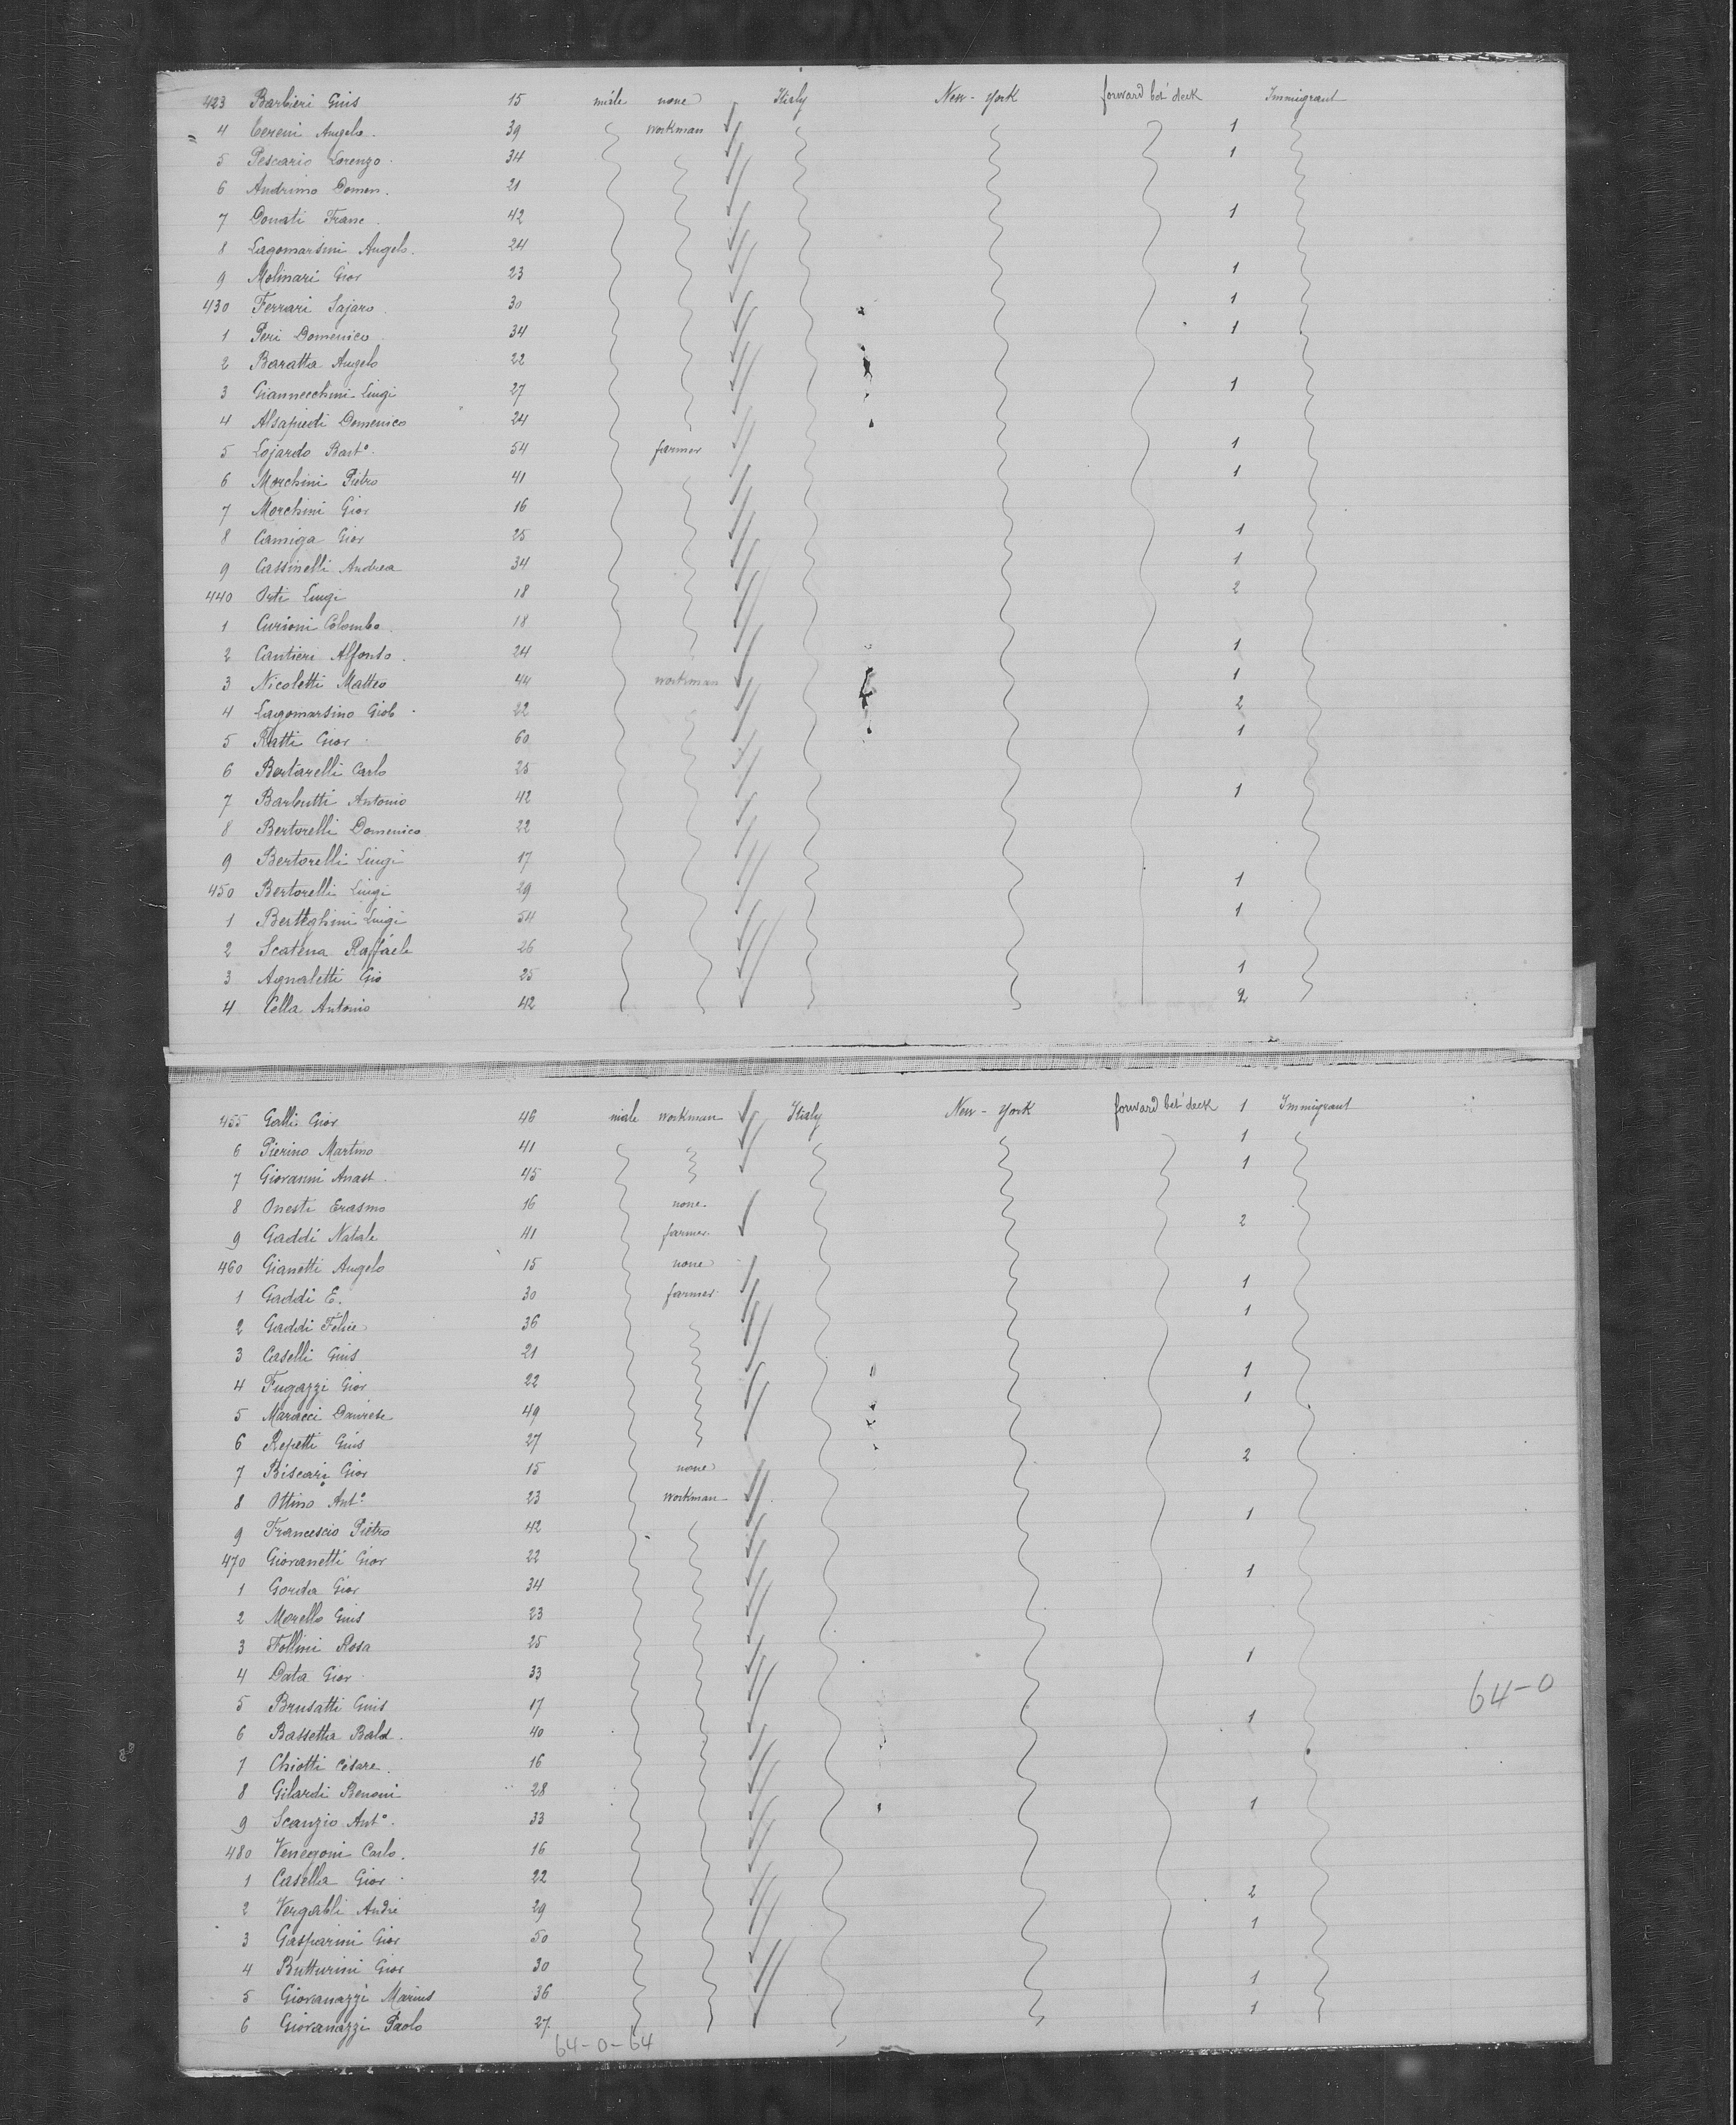 423 Barbieri Gius 15 male none Italy New-York forward bet' deck Immigrant
4 Cereni Angelo. 39 workman 1
5 Pescario Lorenzo. 34 1
6 Andrimo Domen. 21
7 Donati Franc. 42 1
8 Lagomarsini Angelo. 24
9 Molinari Giov 23 1
430 Ferrari 30 1
1 Peri Domenico 34 1
2 Baratta Angelo 22
3 Giannecchini Luigi 27 1
4 Alsapiedi Domenico 24
5 Lojardo Barto. 54 farmer 1
6 Morchini Pietro 41 1
7 Morchini Giov 16
8 Camiga Giov 25 1
9 Cassinelli Andrea 34 1
440 Orti Luigi 18 2
1 Curioni Colombo. 18
2 Cantieri Alfonso. 24 1
3 Nicoletti Matteo 44 workman 1
4 Lagomarsino Giob. 22 2
5 Ratti Giov 60 1
6 Bertarelli Carlo 25
7 Barbutti Antonio 42 1
8 Bertorelli Domenico 22
9 Bertorelli Luigi 17
450 Bertorelli Luigi 29 1
1 Berteghini Luigi 54 1
2 Scatena Raffaele 26
3 Agnaletti Gio 25 1
4 Cella Antonio 42 2
455 Galli Giov 46 male workman Italy New-York forward bet' deck 1 Immigrant
6 Pierino Martino 41 1
7 Giovanni Anast. 45 1
8 Onesti Erasmo 16 none
9 Gaddi Natale 41 farmer 2
460 Gianetti Angelo 15 none
1 Gaddi E. 30 farmer 1
2 Gaddi Felice 36 1
3 Caselli Gius 21
4 Fugazzi Giov 22 1
5 Maracci 49 1
6 Repetti Gius 27 2
7 Biscari Giov 15 none
8 Ottino Anto. 23 workman
9 Francescio Pietro 42 1
470 Giovanetti Giov 22
1 Gorda Giov 34 1
2 Morello Gius 23
3 Follini Rosa 25
4 Data Giov 33 1
5 Brusatti Gius 17
6 Bassetta Bald. 40 1
7 Chiotti Cesare. 16
8 Gilardi Benoni 28
9 Scanzio Anto. 33 1
480 Venegoni Carlo. 16
1 Casella Giov 22
2 Vergabli André 29 2
3 Gasparini Giov 50 1
4 Butturini Giov 30
5 Giovanazzi Marius 36 1
6 Giovanazzi Paolo 27. 1
64-0
64-0-64